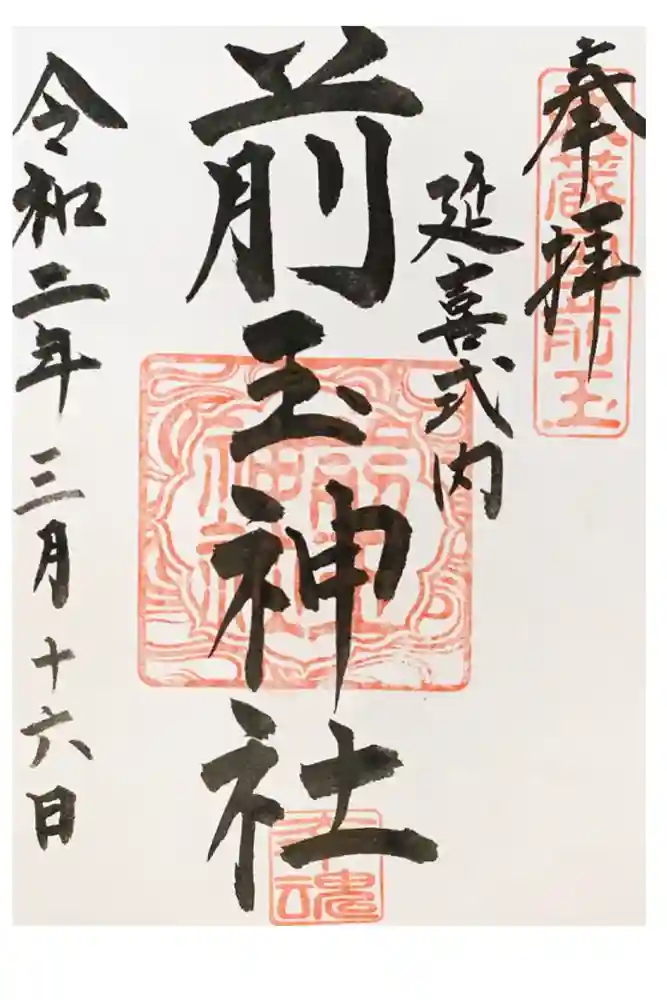 奉拝
延喜式内
前玉神社
令和二年三月十六日
前玉神社
幸魂